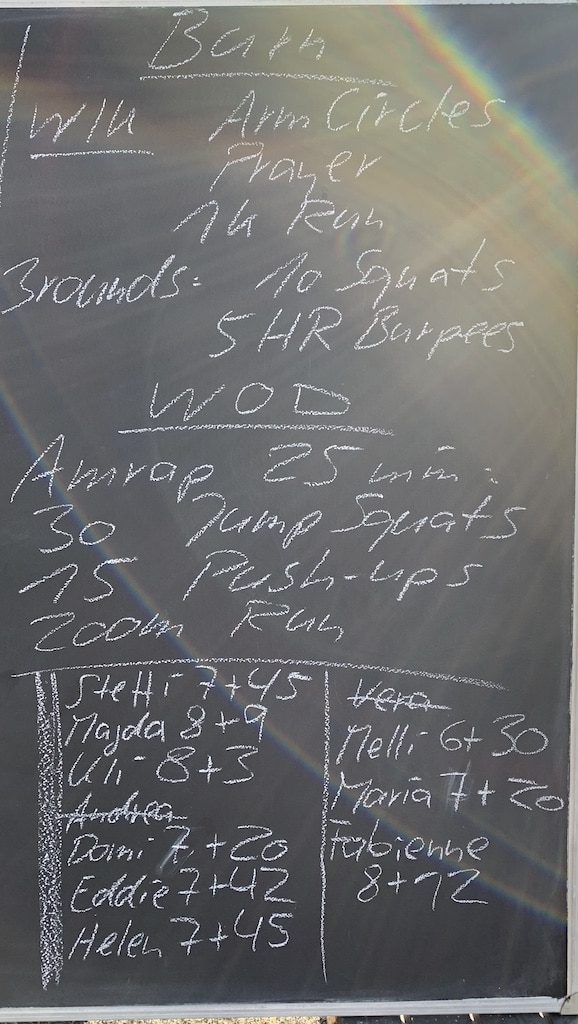 Burn
W/U Arm Circles
Prayer
1k Run
3 rounds: 10 Squats
5 HR Burpees
WOD
Amrap 25 min:
30 Jump Squats
15 Push-ups
200m Run
Steffi 7+45
Majda 8+9
Uli 8+3
Andrea
Domi 7+20
Eddie 7+42
Helen 7+45
Vera
Melli 6+30
Maria 7+20
Fabienne
8+12